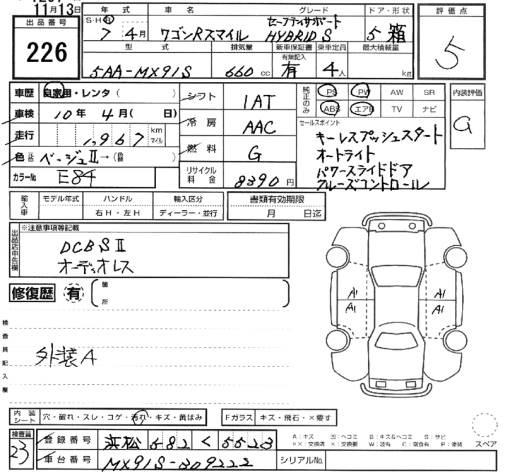 11月13日
出品番号
226
年式 車名 グレード ドア・形状
S・H・R 7年 4月 ワゴンRスマイル セーフティサポート
HYBRID S 5 箱
型式 排気量 新車保証書 乗車定員 最大積載量
有無記入
5AA-MX91S 660 cc 有 4人 kg
評価点
5
車歴 自家用・レンタ ( )
車検 10年 4月 ( 日)
走行 1,967 km マイル
色 ベージュII→( )
カラーNo. E84
シフト 1AT
冷房 AAC
燃料 G
リサイクル料金 8390円
純正のみ
PS PW AW SR
ABS エアB TV ナビ
内装評価
セールスポイント
キーレスプッシュスタート
オートライト
パワースライドドア
クルーズコントロール
輸入車 モデル年式 ハンドル 輸入区分 書類有効期限
年 右H・左H ディーラー・並行 月 日迄
出品店申告欄
※注意事項等記載
DCBSII
オーディオレス
修復歴 有 箇所
検査員記入欄
外装A
A1 A1
A1 A1
内装シート 穴・破れ・スレ・コゲ・汚れ・キズ・黄ばみ
Fガラス キズ・飛石・×要す
スペア
検査員
23
登録番号 浜松 582 く 5523
車台番号 MX91S-209222
シリアルNo.